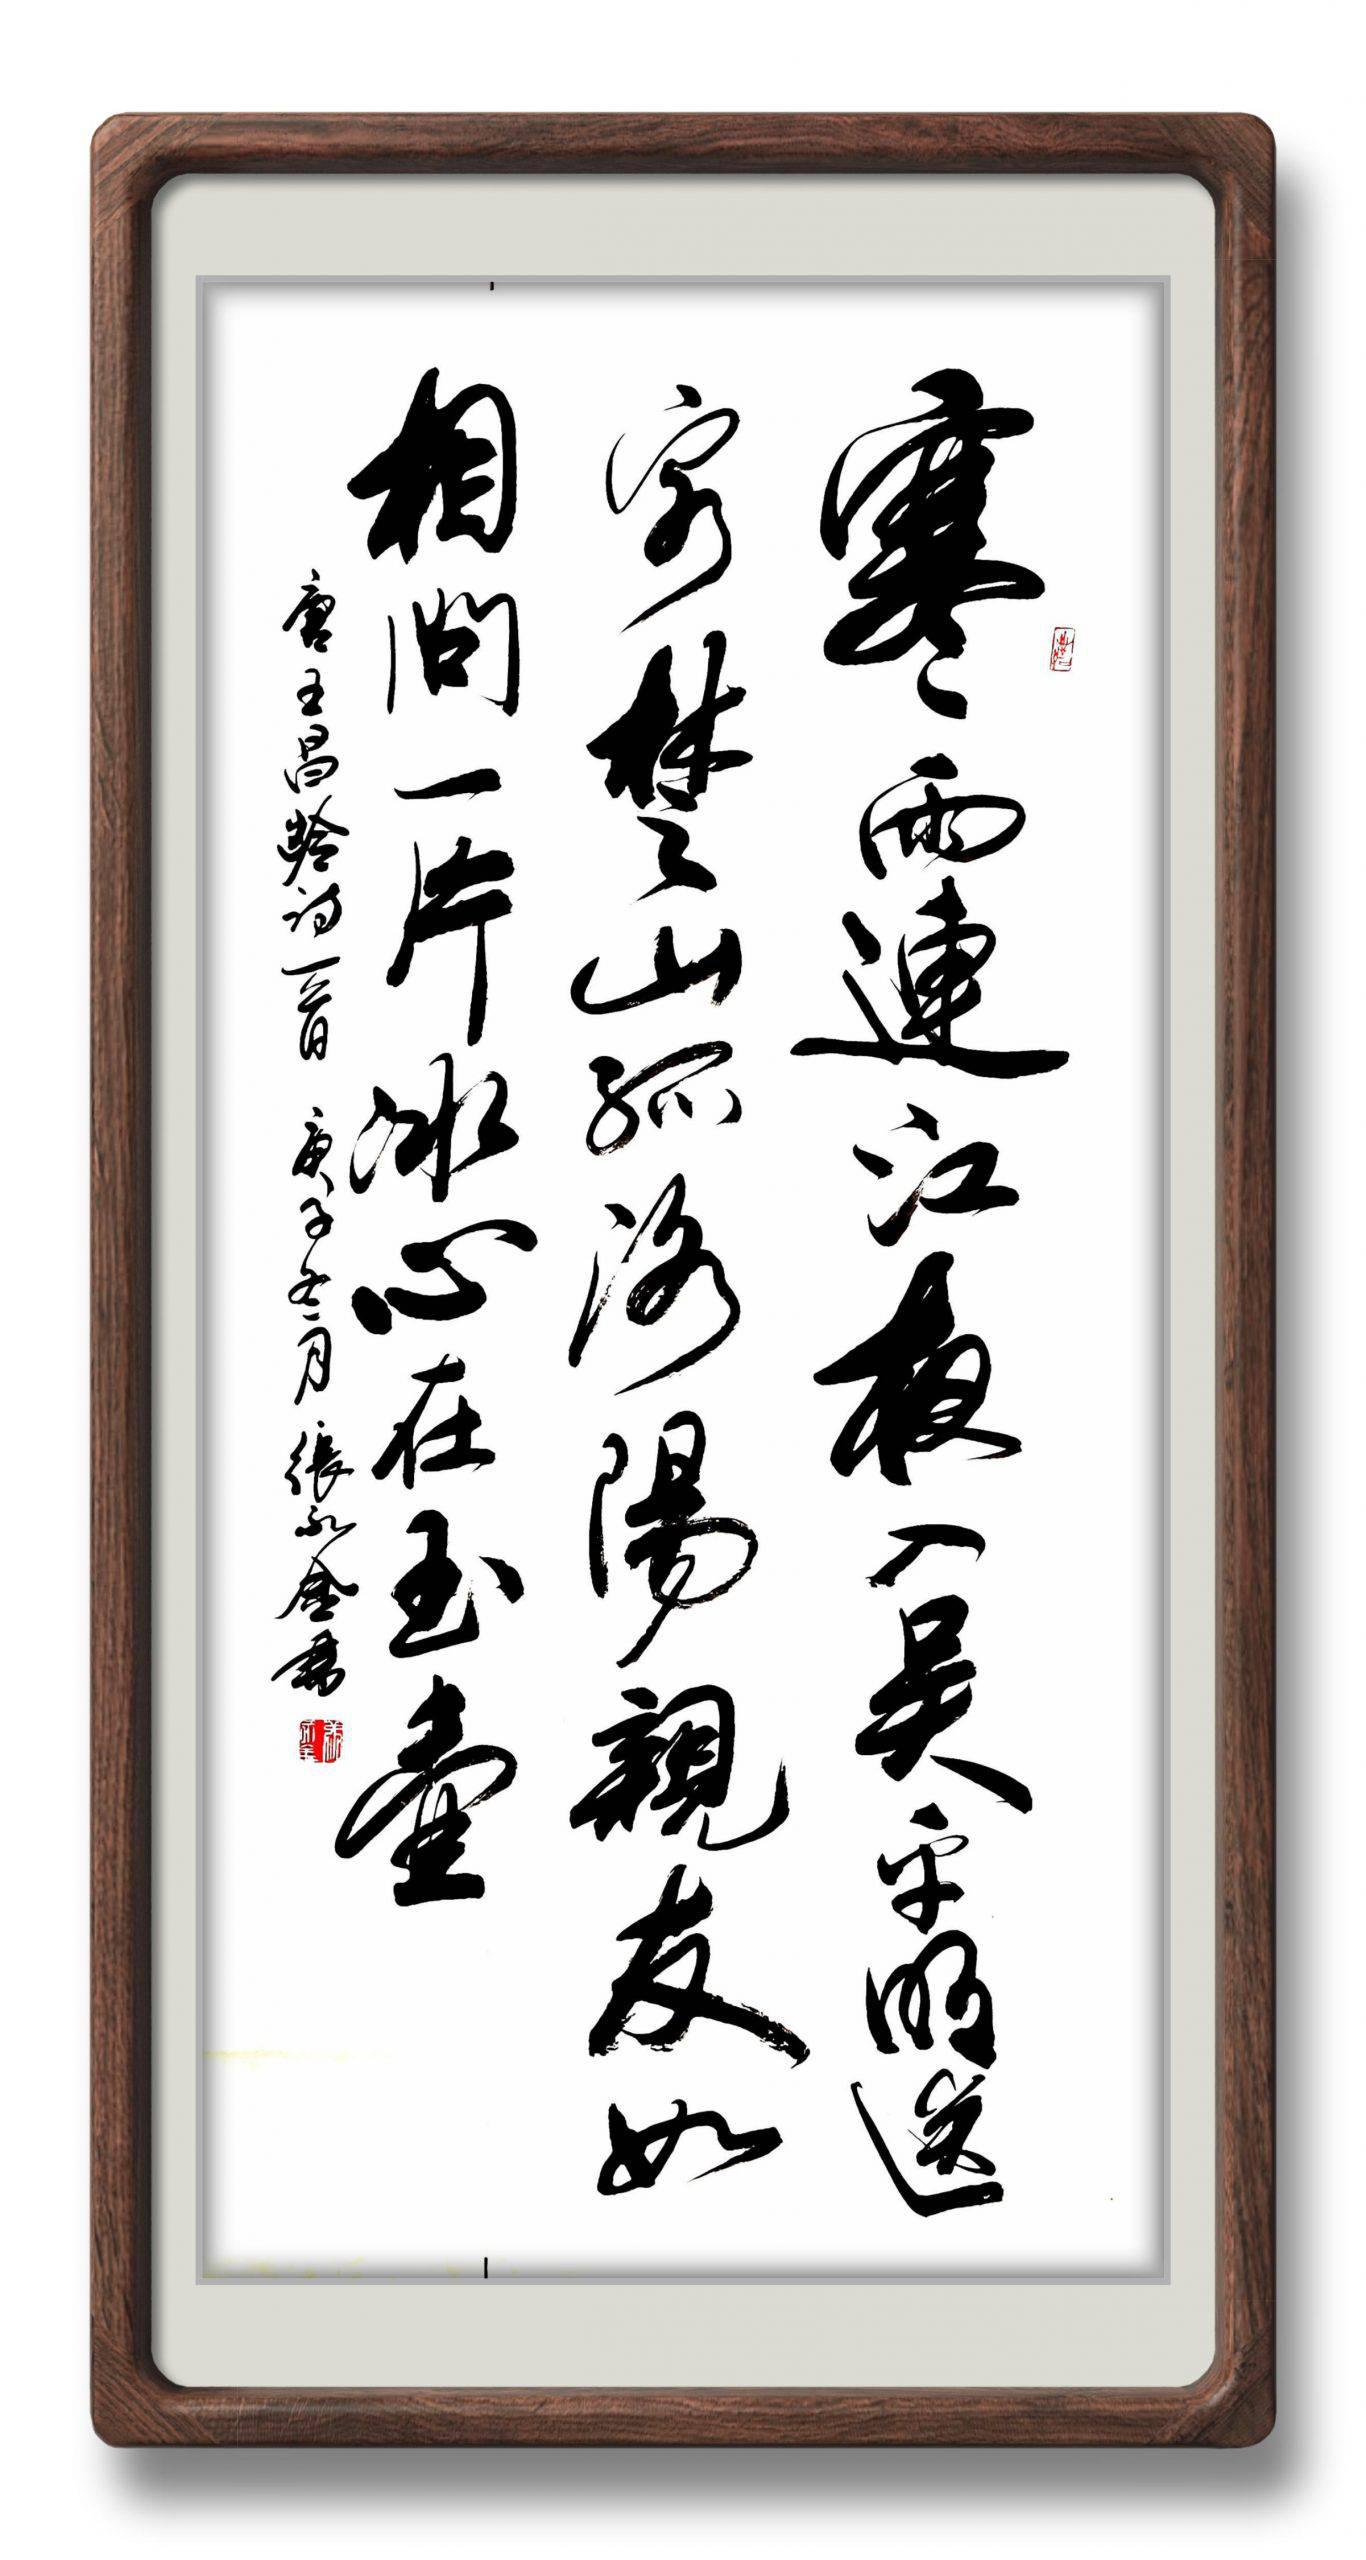 寒雨連江夜入吴平明送
客楚山孤洛陽親友如
相問一片冰心在玉壷
唐王昌龄詩一首 庚子冬月 張永金書